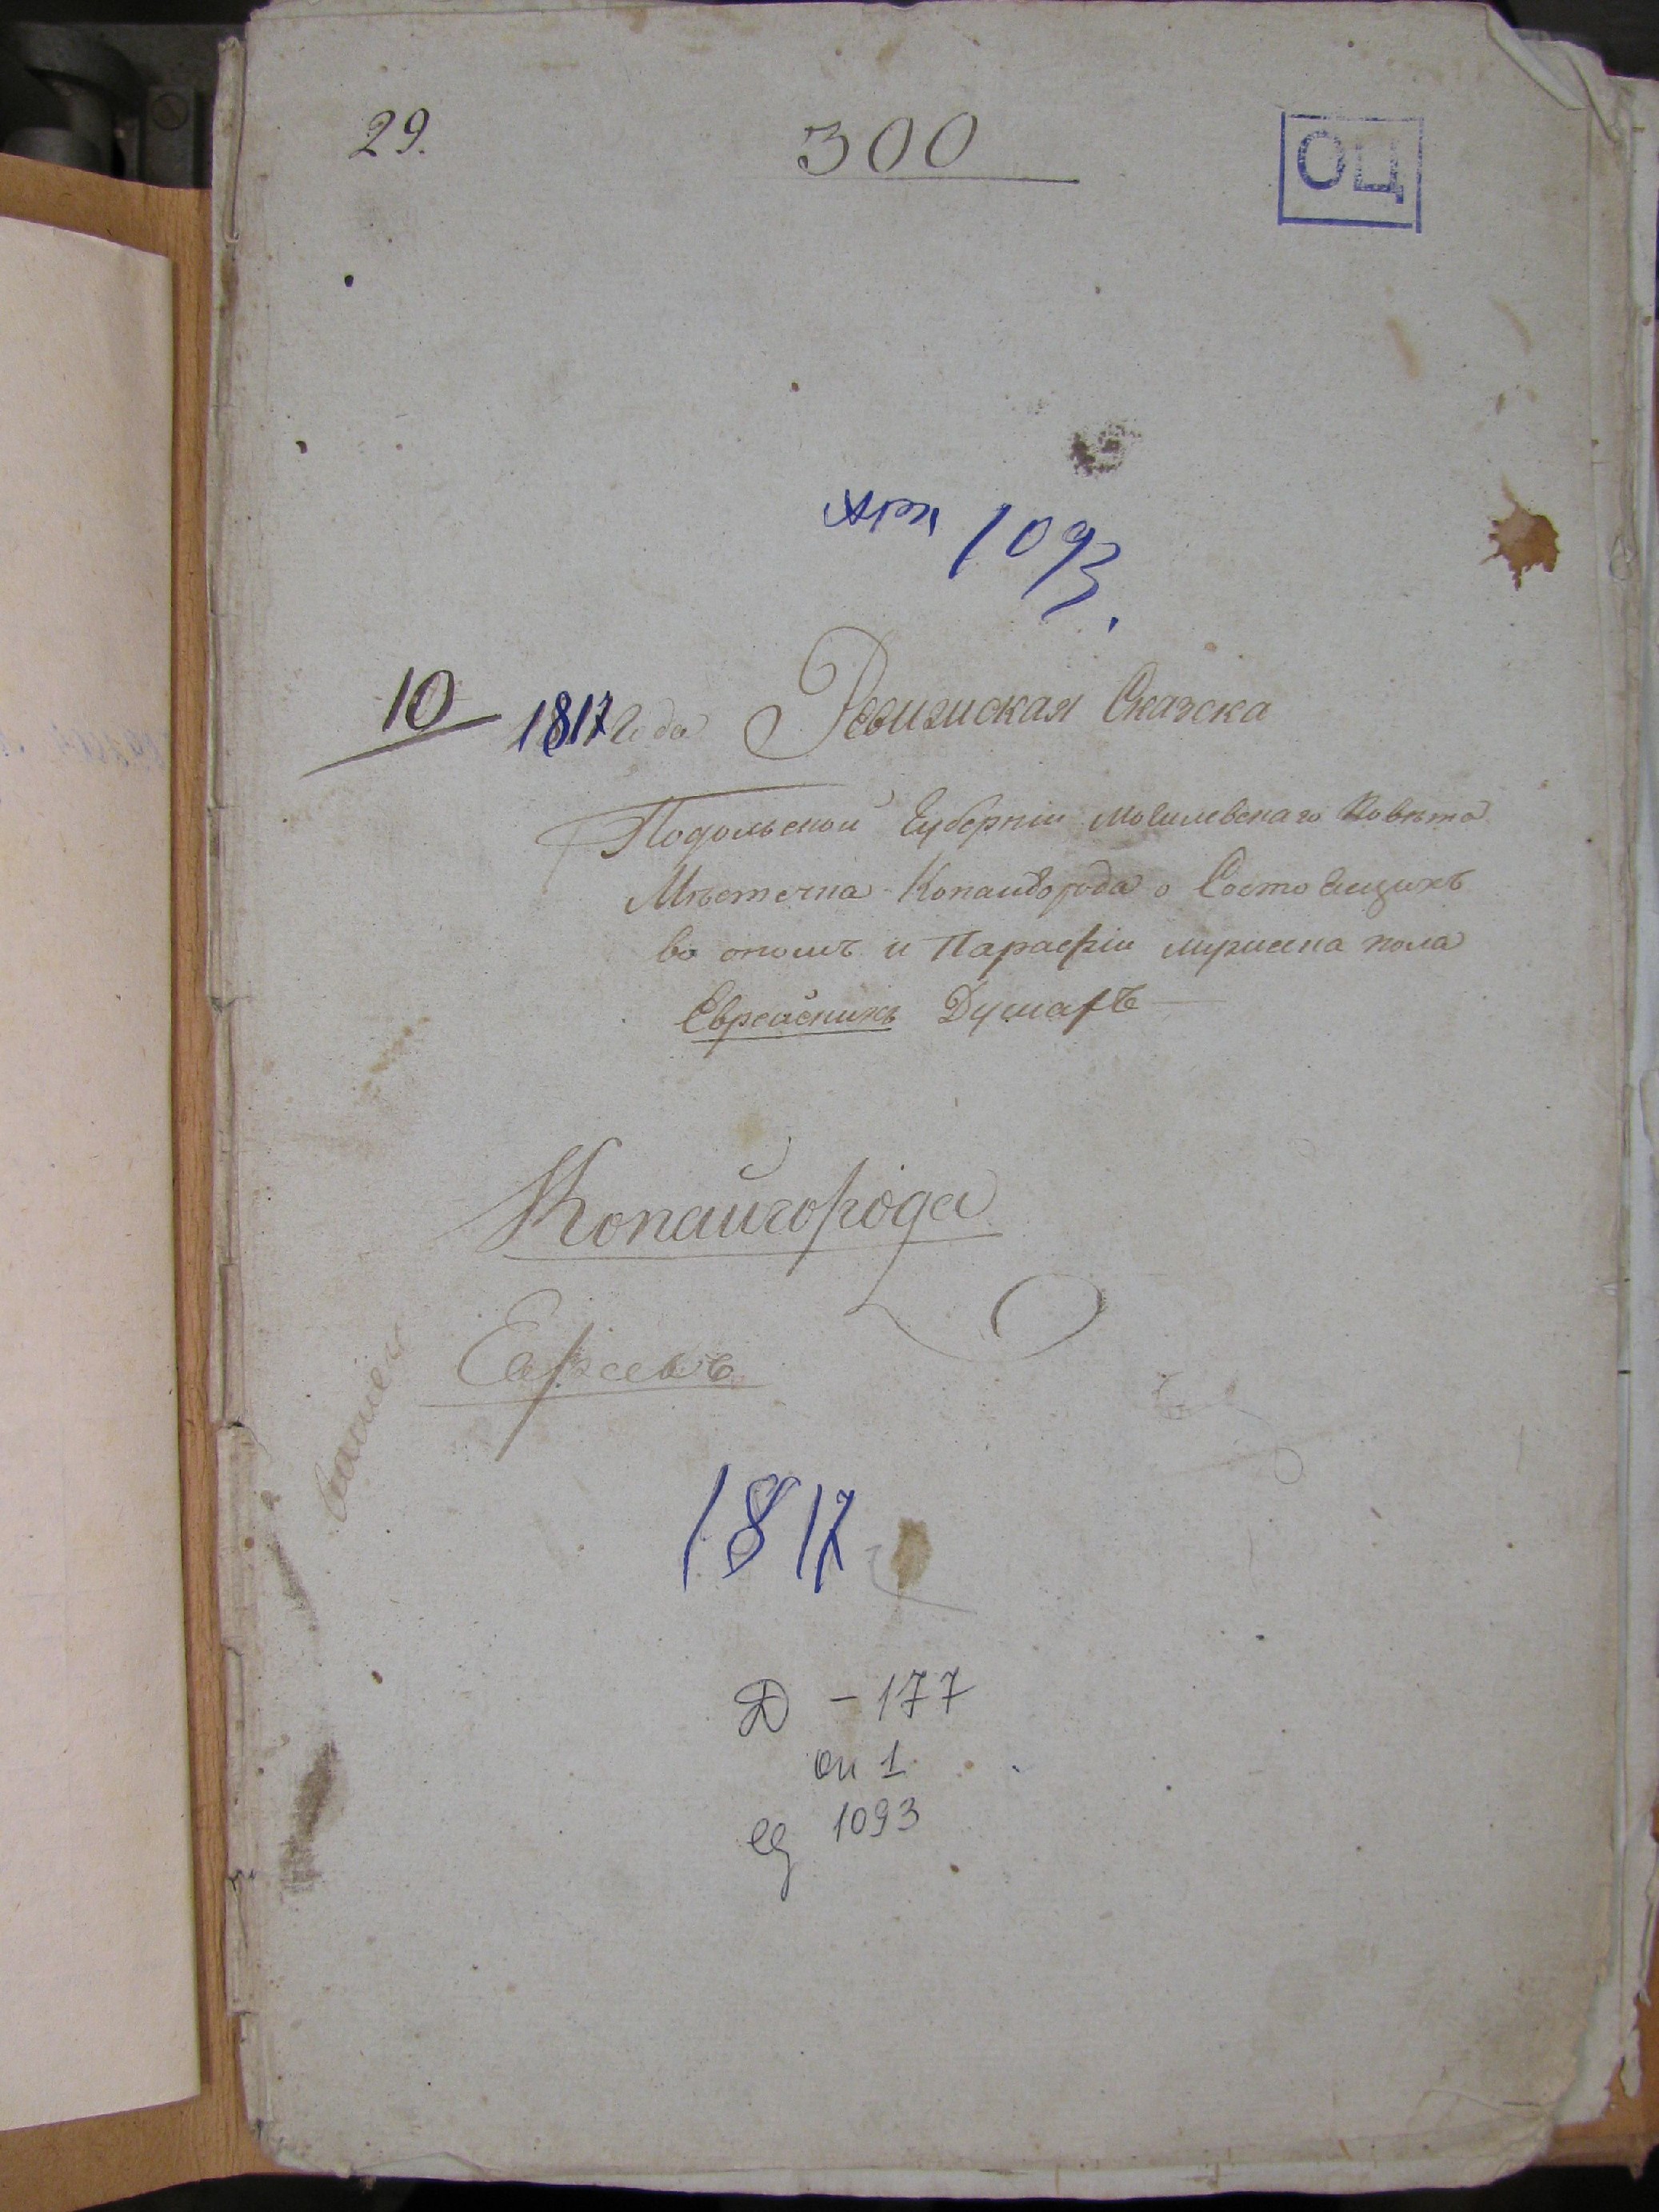 29.
300
ОЦ
1093.
10
1817 Года Ревизская Сказска
Подольской Губерніи Могилевскаго Повѣта
Мѣстечка Копайгорода о Состоящихъ
во ономъ и Парафіи мужеска пола
Еврейскихъ Душахъ
Копайгорода
Евреевъ
1817
Ф - 177
оп 1.
ед 1093